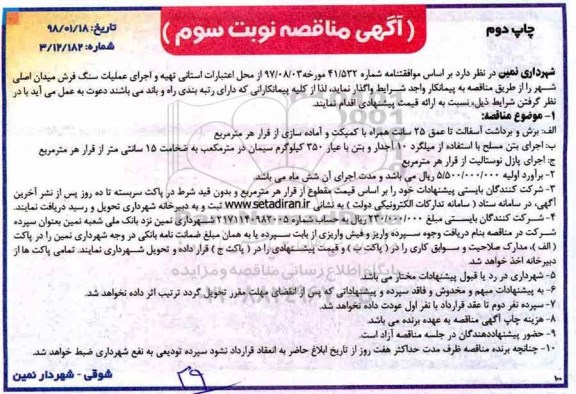 چاپ دوم
( آگهی مناقصه نوبت سوم )
تاریخ: ۹۸/۰۱/۱۸
شماره: ۳/۱۲/۱۸۲
شهرداری نمین در نظر دارد بر اساس موافقتنامه شماره ۴۱/۵۳۲ مورخه ۹۷/۰۸/۰۳ از محل اعتبارات استانی تهیه و اجرای عملیات سنگ فرش میدان اصلی
شهر را از طریق مناقصه به پیمانکار واجد شرایط واگذار نماید، لذا از کلیه پیمانکارانی که دارای رتبه بندی راه و باند می باشند دعوت به عمل می آید با در
نظر گرفتن شرایط ذیل، نسبت به ارائه قیمت پیشنهادی اقدام نمایند.
۱- موضوع مناقصه:
الف: برش و برداشت آسفالت تا عمق ۲۵ سانت همراه با کمپکت و آماده سازی از قرار هر مترمربع
ب: اجرای بتن مسلح با استفاده از میلگرد ۱۰ آجدار و بتن با عیار ۳۵۰ کیلوگرم سیمان در مترمکعب به ضخامت ۱۵ سانتی متر از قرار هر مترمربع
ج: اجرای پازل نوستالیت از قرار هر مترمربع
۲- برآورد اولیه ۵/۵۰۰/۰۰۰/۰۰۰ ریال می باشد و مدت اجرای آن شش ماه می باشد
۳- شرکت کنندگان بایستی پیشنهادات خود را بر اساس قیمت مقطوع از قرار هر مترمربع و بدون قید شرط در پاکت سربسته تا ده روز پس از نشر آخرین
آگهی، در سامانه ستاد ( سامانه تدارکات الکترونیکی دولت ) به نشانی www.setadiran.ir ثبت و به دبیرخانه شهرداری تحویل و رسید دریافت نمایند.
۴- شرکت کنندگان بایستی مبلغ ۲۳۰/۰۰۰/۰۰۰ ریال به حساب شماره ۲۱۷۱۱۲۰۹۸۲۰۰۵ شهرداری نمین نزد بانک ملی شعبه نمین بعنوان سپرده
شرکت در مناقصه بنام دریافت وجوه سپرده واریز و فیش واریزی از بابت سپرده یا به همان مبلغ ضمانت نامه بانکی در وجه شهرداری نمین را در پاکت
( الف )، مدارک صلاحیت و سوابق کاری را در ( پاکت ب ) و قیمت پیشنهادی را در ( پاکت ج ) قرار داده و تحویل شهرداری نمایند. تمامی پاکت ها از
دبیرخانه اخذ خواهد شد.
۵- شهرداری در رد یا قبول پیشنهادات مختار می باشد.
۶- به پیشنهادات مبهم و مخدوش و فاقد سپرده و پیشنهاداتی که پس از انقضای مهلت مقرر تحویل گردد ترتیب اثر داده نخواهد شد.
۷- سپرده نفر دوم تا عقد قرارداد با نفر اول عودت داده نخواهد شد.
۸- هزینه چاپ آگهی مناقصه به عهده برنده می باشد.
۹- حضور پیشنهاددهندگان در جلسه مناقصه آزاد است.
۱۰- چنانچه برنده مناقصه ظرف مدت حداکثر هفت روز از تاریخ ابلاغ حاضر به انعقاد قرارداد نشود سپرده تودیعی به نفع شهرداری ضبط خواهد شد.
شوقی - شهردار نمین